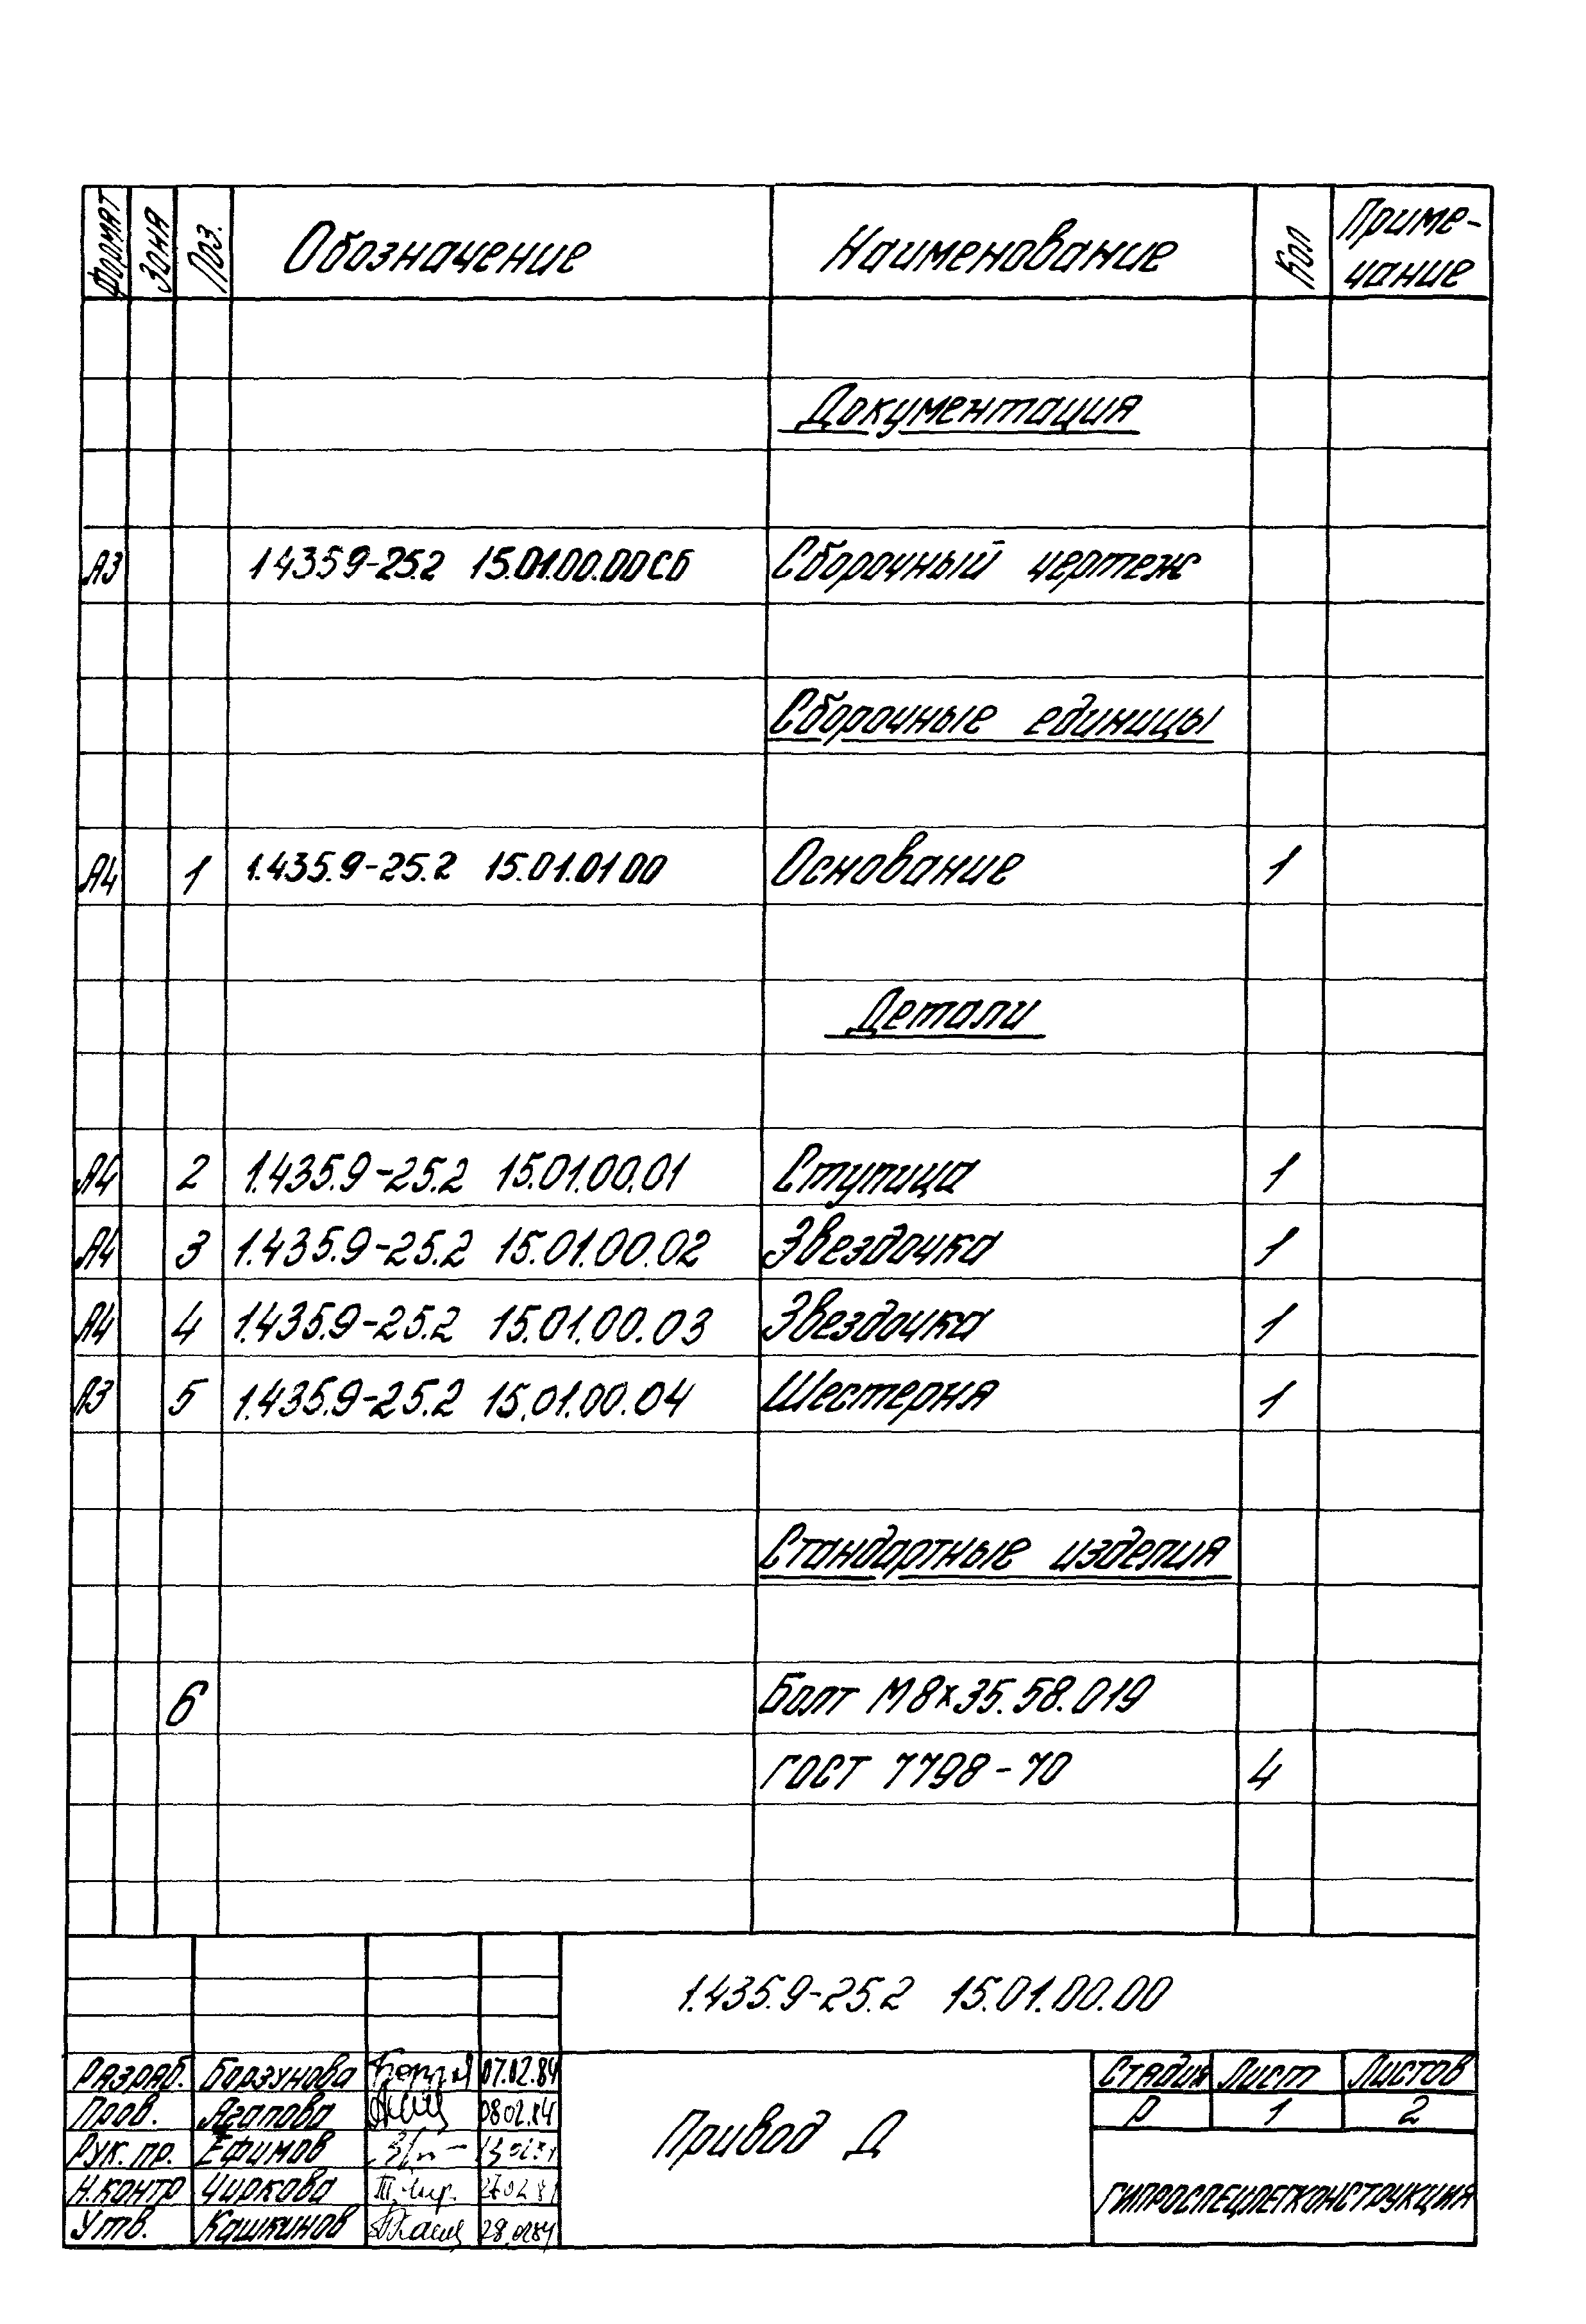 Формат Зона Поз. Обозначение Наименование Кол Приме-
чание
Документация
А3 1 435 9-25.2 15.01.00.00 СБ Сборочный чертеж
Сборочные единицы
А4 1 1.435.9-25.2 15.01.01 00 Основание 1
Детали
А4 2 1.435.9-25.2 15.01.00.01 Ступица 1
А4 3 1.435.9-25.2 15.01.00.02 Звездочка 1
А4 4 1.435.9-25.2 15.01.00.03 Звездочка 1
А3 5 1.435.9-25.2 15.01.00.04 Шестерня 1
Стандартные изделия
6 Болт М8х35.58.019
ГОСТ 7798-70 4
1.435.9-25.2 15.01.00.00
Разраб. Борзунова 07.02.84
Пров. Агапова 08 02.84
Рук. пр. Ефимов
Н.контр Чиркова
Утв. Кашкинов 28.0284
Привод Д
Стадия Лист Листов
Р 1 2
ГИПРОСПЕЦЛЕГКОНСТРУКЦИЯ